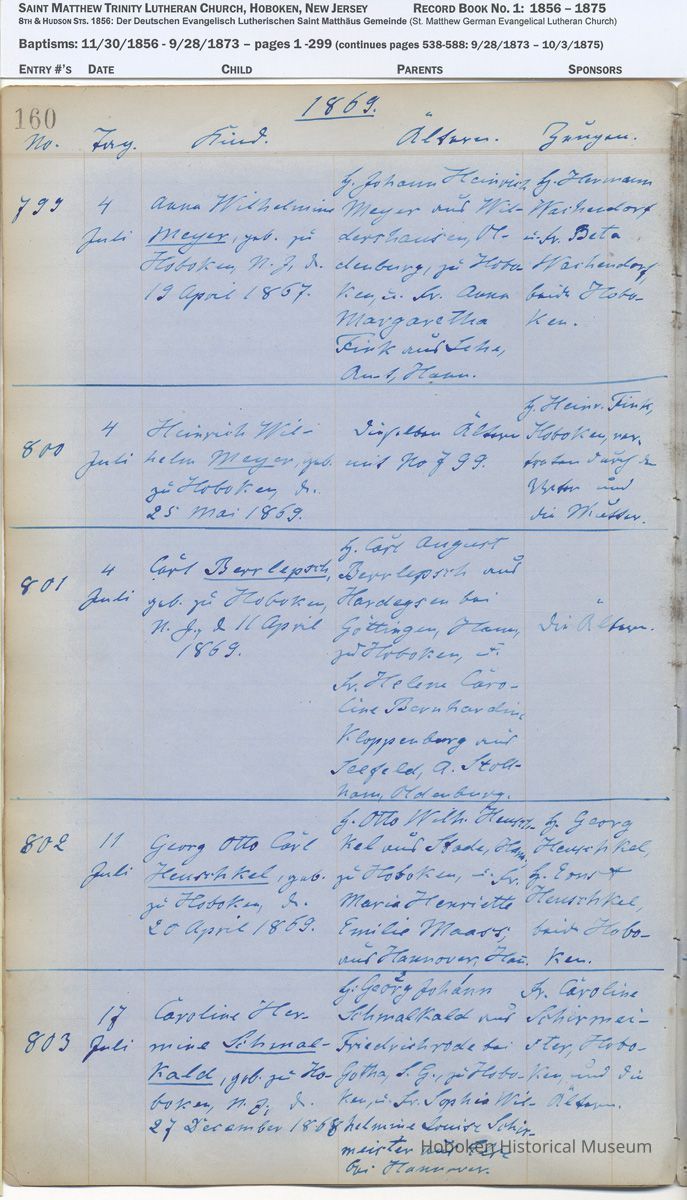 SAINT MATTHEW TRINITY LUTHERAN CHURCH, HOBOKEN, NEW JERSEY RECORD BOOK NO. 1: 1856 – 1875
8TH & HUDSON STS. 1856: Der Deutschen Evangelisch Lutherischen Saint Matthäus Gemeinde (St. Matthew German Evangelical Lutheran Church)
Baptisms: 11/30/1856 - 9/28/1873 – pages 1 -299 (continues pages 538-588: 9/28/1873 – 10/3/1875)
ENTRY #'S DATE CHILD PARENTS SPONSORS
160
1869.
No. Tag. Kind. Ältern. Zeugen.
799
4
Juli
Anna Wilhelmine
Meyer, geb. zu
Hoboken, N. J., d.
19 April 1867.
H. Johann Heinrich
Meyer aus Wil-
dershausen, Ol-
denburg, zu Hobo-
ken, u. Fr. Anna
Margaretha
Fink aus Lehe,
Amt, Hann.
H. Hermann
Wachendorf
u. Fr. Beta
Wachendorf,
beide Hobo-
ken.
800
4
Juli
Heinrich Wil-
helm Meyer, geb.
zu Hoboken, d.
25 Mai 1869.
Dieselben Ältern
mit No 799.
H. Heinr. Fink,
Hoboken, ver-
treten durch d.
Vater und
die Mutter.
801
4
Juli
Carl Berrlepsch,
geb. zu Hoboken,
N. J., d 11 April
1869.
H. Carl August
Berrlepsch aus
Hardegsen bei
Göttingen, Hann,
zu Hoboken, u.
Fr. Helene Caro-
line Bernhardine
Kloppenburg aus
Seefeld, A. Stoll-
ham, Oldenburg.
Die Ältern.
802
11
Juli
Georg Otto Carl
Heuschkel, geb.
zu Hoboken, d.
20 April 1869.
H. Otto Wilh. Heusch-
kel aus Stade, Hann,
zu Hoboken, u. Fr.
Maria Henriette
Emilie Maass,
aus Hannover, Han.
H. Georg
Heuschkel,
H. Ernst
Heuschkel,
beide Hobo-
ken.
803
17
Juli
Caroline Her-
mine Schmal-
kald, geb. zu Ho-
boken, N. J., d.
27 December 1868
H. Georg Johann
Schmalkald aus
Friedrichrode bei
Gotha, S. G., zu Hobo-
ken, u. Fr. Sophia Wil-
helmine Louise Schir-
meister aus
bei Hannover.
Fr. Caroline
Schirmei-
ster, Hobo-
ken, und die
Ältern.
Hoboken Historical Museum